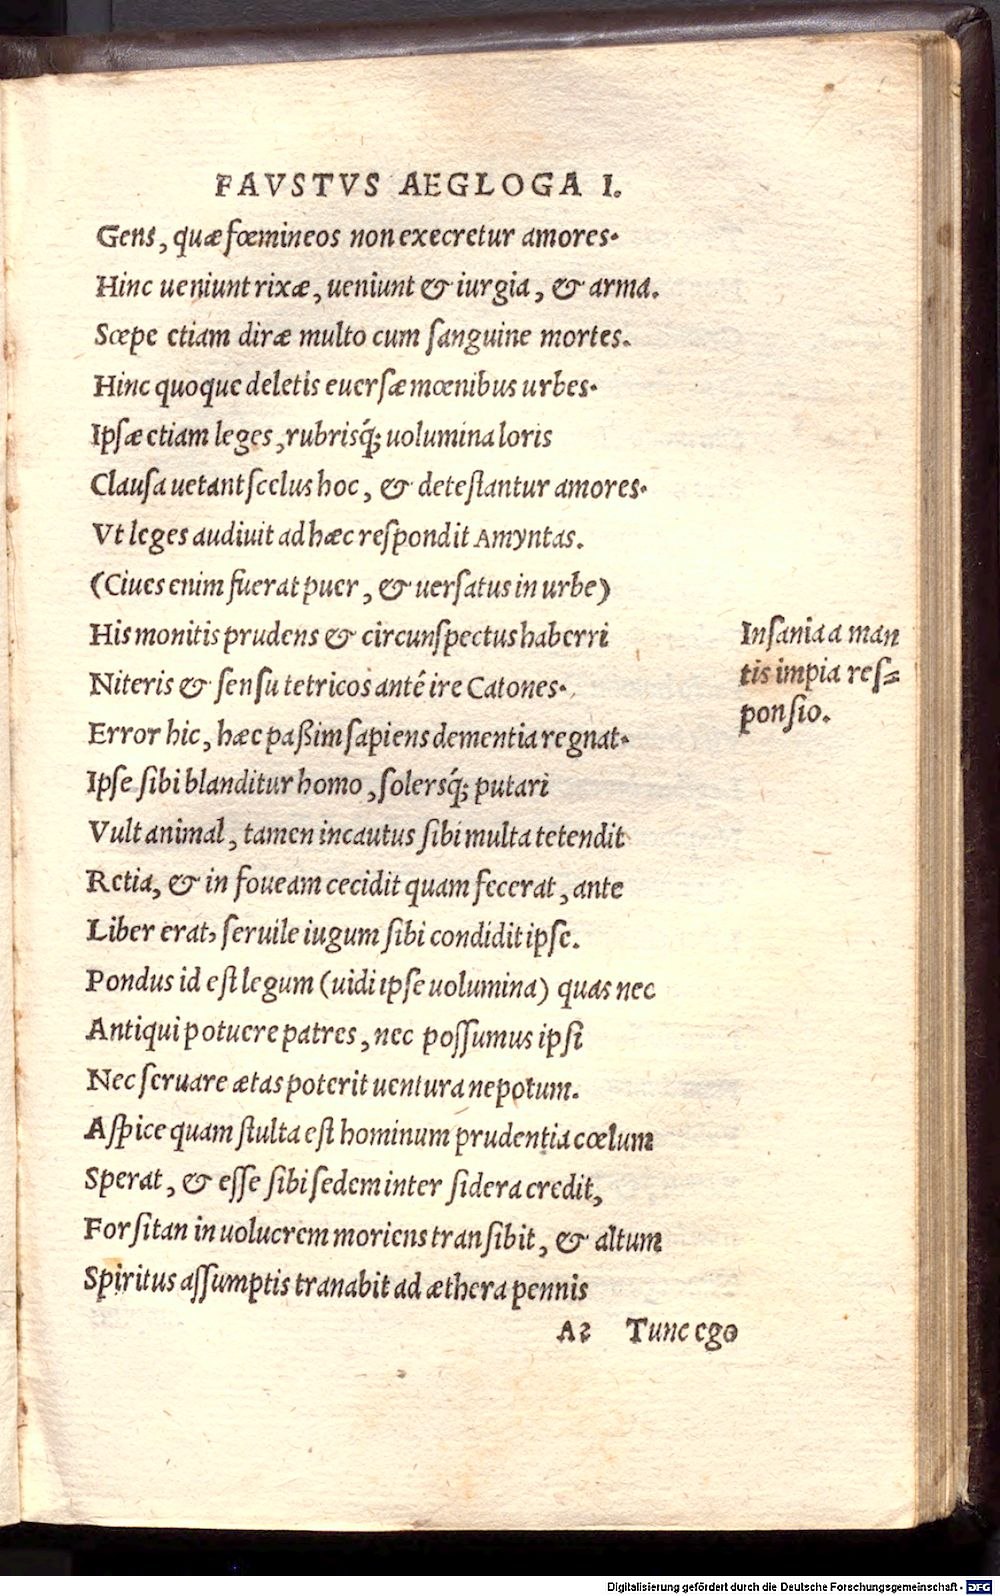 FAVSTVS AEGLOGA I.
Gens, quæ fœmineos non execretur amores.
Hinc ueniunt rixæ, ueniunt & iurgia, & arma.
Sœpe etiam diræ multo cum sanguine mortes.
Hinc quoque deletis euersæ mœnibus urbes.
Ipsæ etiam leges, rubrisq́; uolumina loris
Clausa uetant scelus hoc, & detestantur amores.
Vt leges audiuit ad hæc respondit Amyntas.
(Ciues enim fuerat puer, & uersatus in urbe)
His monitis prudens & circunspectus haberri
Niteris & sensu tetricos antê ire Catones.
Error hic, hæc paßim sapiens dementia regnat.
Ipse sibi blanditur homo, solersq́; putari
Vult animal, tamen incautus sibi multa tetendit
Retia, & in foueam cecidit quam fecerat, ante
Liber erat, seruile iugum sibi condidit ipse.
Pondus id est legum (uidi ipse uolumina) quas nec
Antiqui potuere patres, nec possumus ipsi
Nec seruare ætas poterit uentura nepotum.
Aspice quam stulta est hominum prudentia cœlum
Sperat, & esse sibi sedem inter sidera credit,
Forsitan in uolucrem moriens transibit, & altum
Spiritus assumptis tranabit ad æthera pennis
A2 Tunc ego
Insania a man
tis impia res=
ponsio.
Digitalisierung gefördert durch die Deutsche Forschungsgemeinschaft - DFG